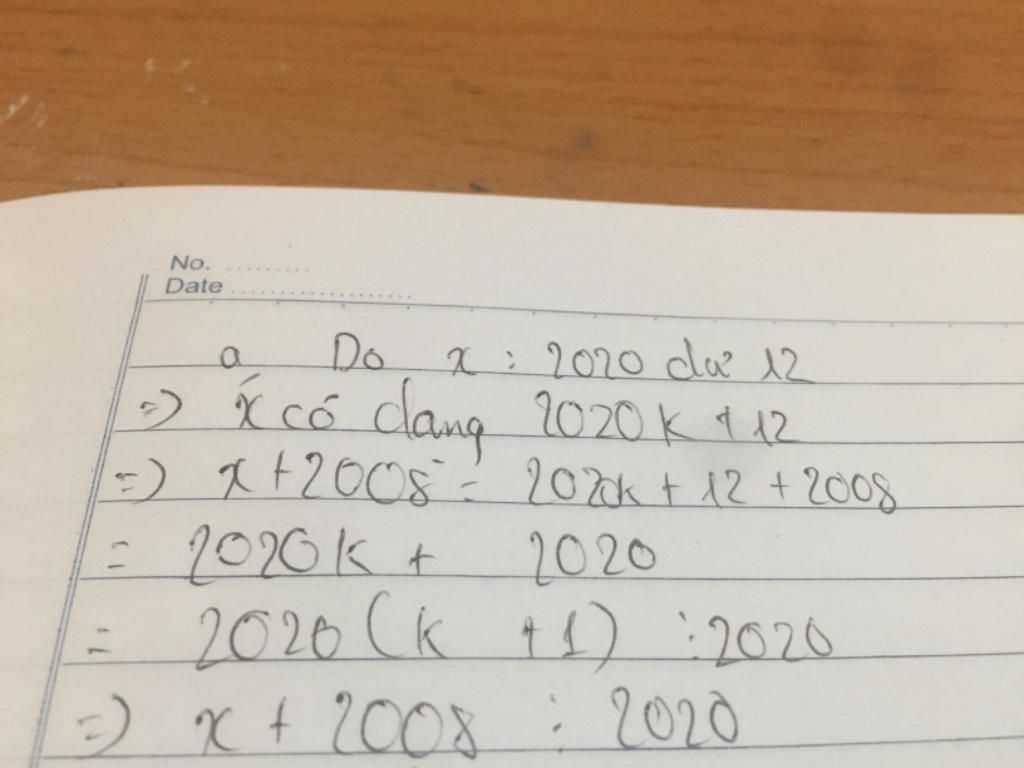 No. ..........
Date ....................
a Do x : 2020 dư 12
=> x có dang 2020k + 12
=> x + 2008 = 2020k + 12 + 2008
= 2020k + 2020
= 2020(k + 1) ⋮ 2020
=> x + 2008 ⋮ 2020